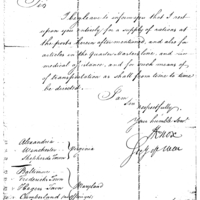 Sir
I beg leave to inform you that I rest
upon you entirely for a supply of rations at
the posts herein aftermentioned, and also for
articles in the Quarter Masters line, and in
medical of stores, and for such means of
of transportation as shall from time to time
be directed.
I am
Sir
respectfully
Your humble Serv
J Knox
Sec of War
Alexandria
Winchester
Shepherds Town
Virginia
Baltimore
Frederick Town
Hagers Town
Maryland
Cumberland